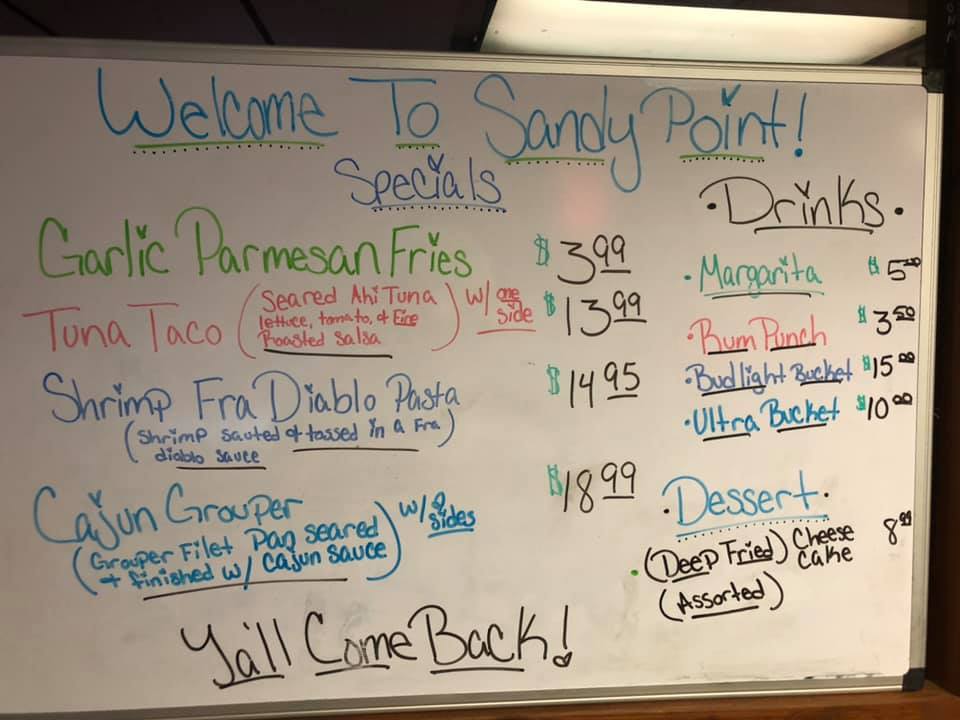 Welcome To Sandy Point!
Specials
Garlic Parmesan Fries $3.99
Tuna Taco (Seared Ahi Tuna
lettuce, tomato, & Fire
Roasted Salsa) w/ one side $13.99
Shrimp Fra Diablo Pasta $14.95
(Shrimp sauted & tossed in a Fra
diablo sauce)
Cajun Grouper $18.99
(Grouper Filet Pan seared
& finished w/ Cajun sauce) w/ 2 sides
·Drinks·
·Margarita $5.00
·Rum Punch $3.50
·Budlight Bucket $15.00
·Ultra Bucket $10.00
·Dessert·
·(Deep Fried) Cheese Cake 8.99
(Assorted)
Ya'll Come Back!